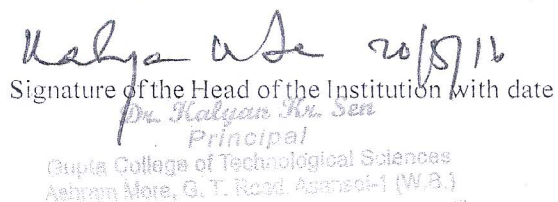 Kalyan Sen 20/5/16
Signature of the Head of the Institution with date
Dr. Kalyan Kr. Sen
Principal
Gupta College of Technological Sciences
Ashram More, G. T. Road, Asansol-1 (W.B.)